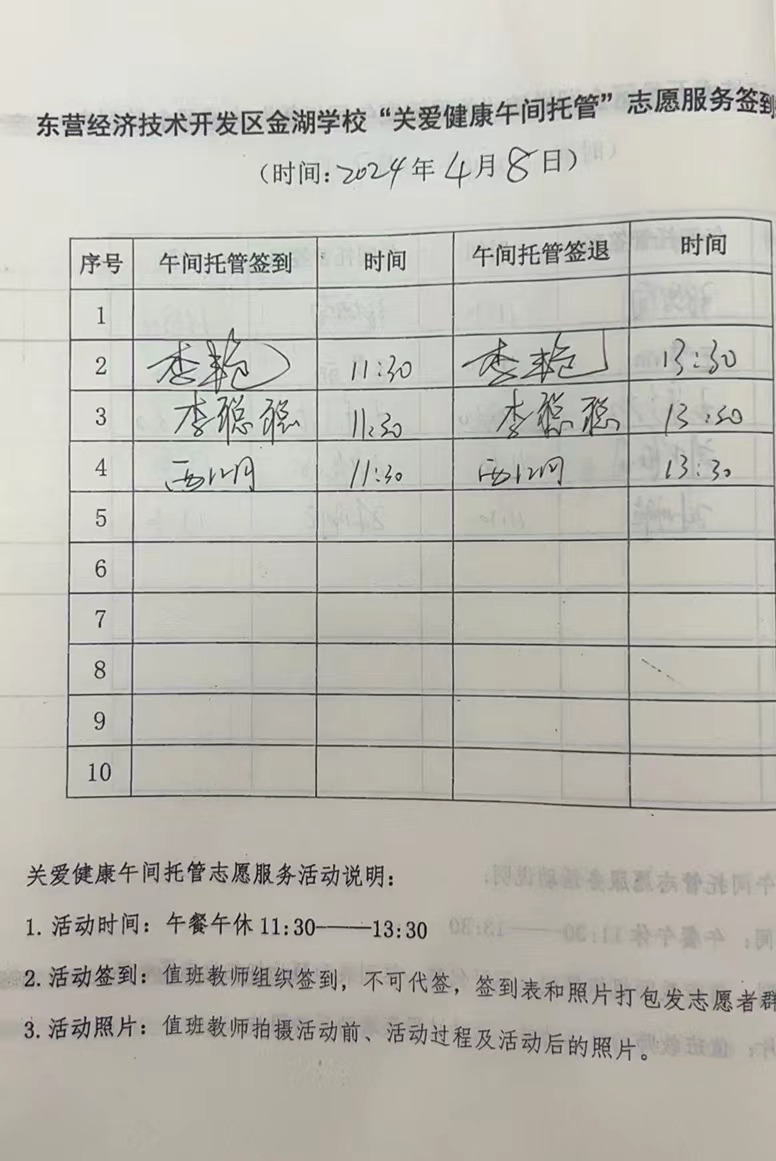 东营经济技术开发区金湖学校“关爱健康午间托管”志愿服务签到
(时间:2024年4月8日)
序号 午间托管签到 时间 午间托管签退 时间
1
2 李艳 11:30 李艳 13:30
3 李聪聪 11:30 李聪聪 13:30
4 11:30 13:30
5
6
7
8
9
10
关爱健康午间托管志愿服务活动说明:
1. 活动时间:午餐午休 11:30——13:30
2. 活动签到:值班教师组织签到,不可代签,签到表和照片打包发志愿者群
3. 活动照片:值班教师拍摄活动前、活动过程及活动后的照片。